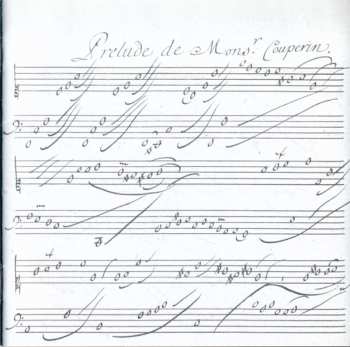 Prelude de Mons.r Couperin.